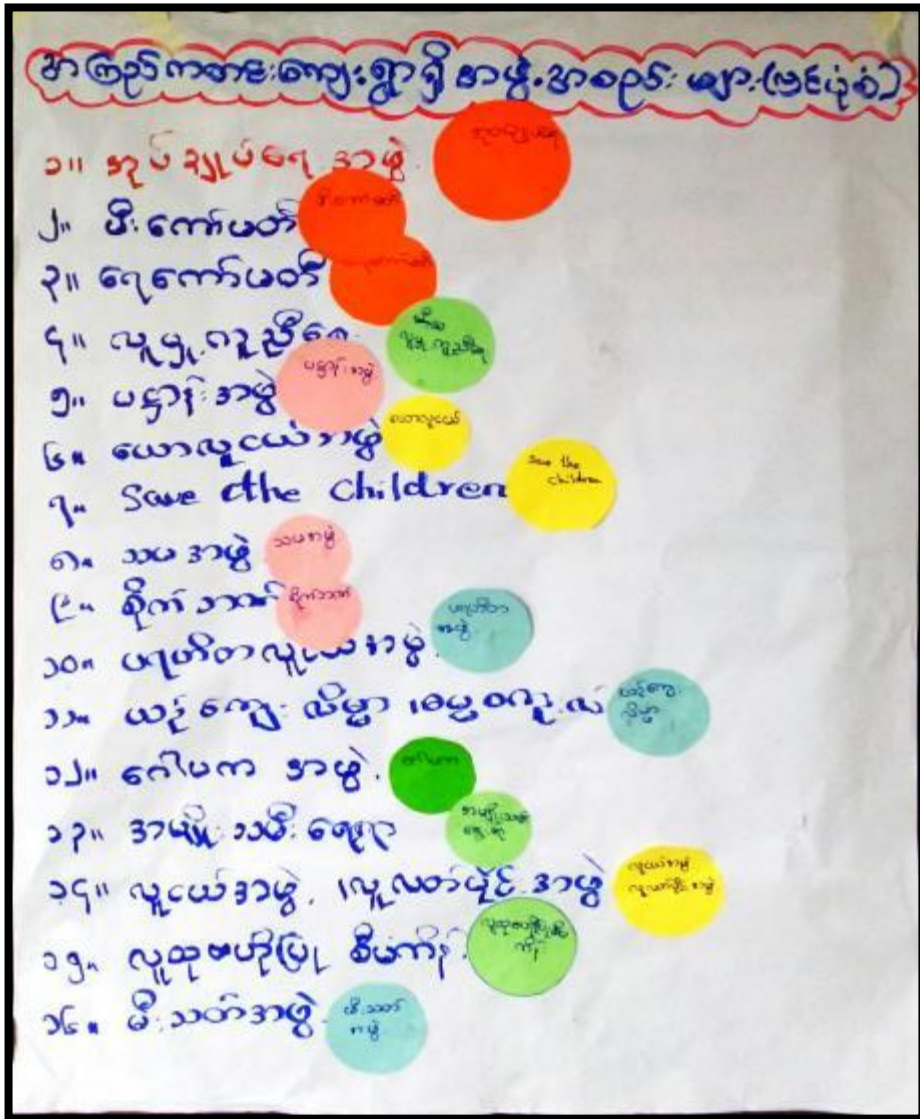 အကြည်ကတင်းကျေးရွာရှိ အဖွဲ့အစည်းများ(ဗင်းပုံစံ)
၁။ အုပ်ချုပ်ရေး အဖွဲ့
၂။ မီးကော်မတီ
၃။ ရေကော်မတီ
၄။ လူမှုကူညီရေး
၅။ ပဋ္ဌာန်းအဖွဲ့
ပဋ္ဌာန်းအဖွဲ့
၆။ ယောလူငယ်အဖွဲ့
ယောလူငယ်
၇။ Save the Children
Save the
children
၈။ သမအဖွဲ့
သမအဖွဲ့
၉။ စိုက်
၁၀။ ပရဟိတလူငယ်အဖွဲ့
ပရဟိတ
အဖွဲ့
၁၁။ ယဉ်ကျေးလိမ္မာ ၊ဓမ္မစကူးလ်
ယဉ်ကျေး
လိမ္မာ
၁၂။ ဂေါပက အဖွဲ့
ဂေါပက
၁၃။ အမျိုးသမီးရေးရာ
၁၄။ လူငယ်အဖွဲ့ ၊လူလတ်ပိုင်းအဖွဲ့
လူငယ်အဖွဲ့
လူလတ်ပိုင်းအဖွဲ့
၁၅။ လူထုဗဟိုပြု စီမံကိန်း
လူထုဗဟိုပြုစီမံ
ကိန်း
၁၆။ မီးသတ်အဖွဲ့
မီးသတ်
အဖွဲ့